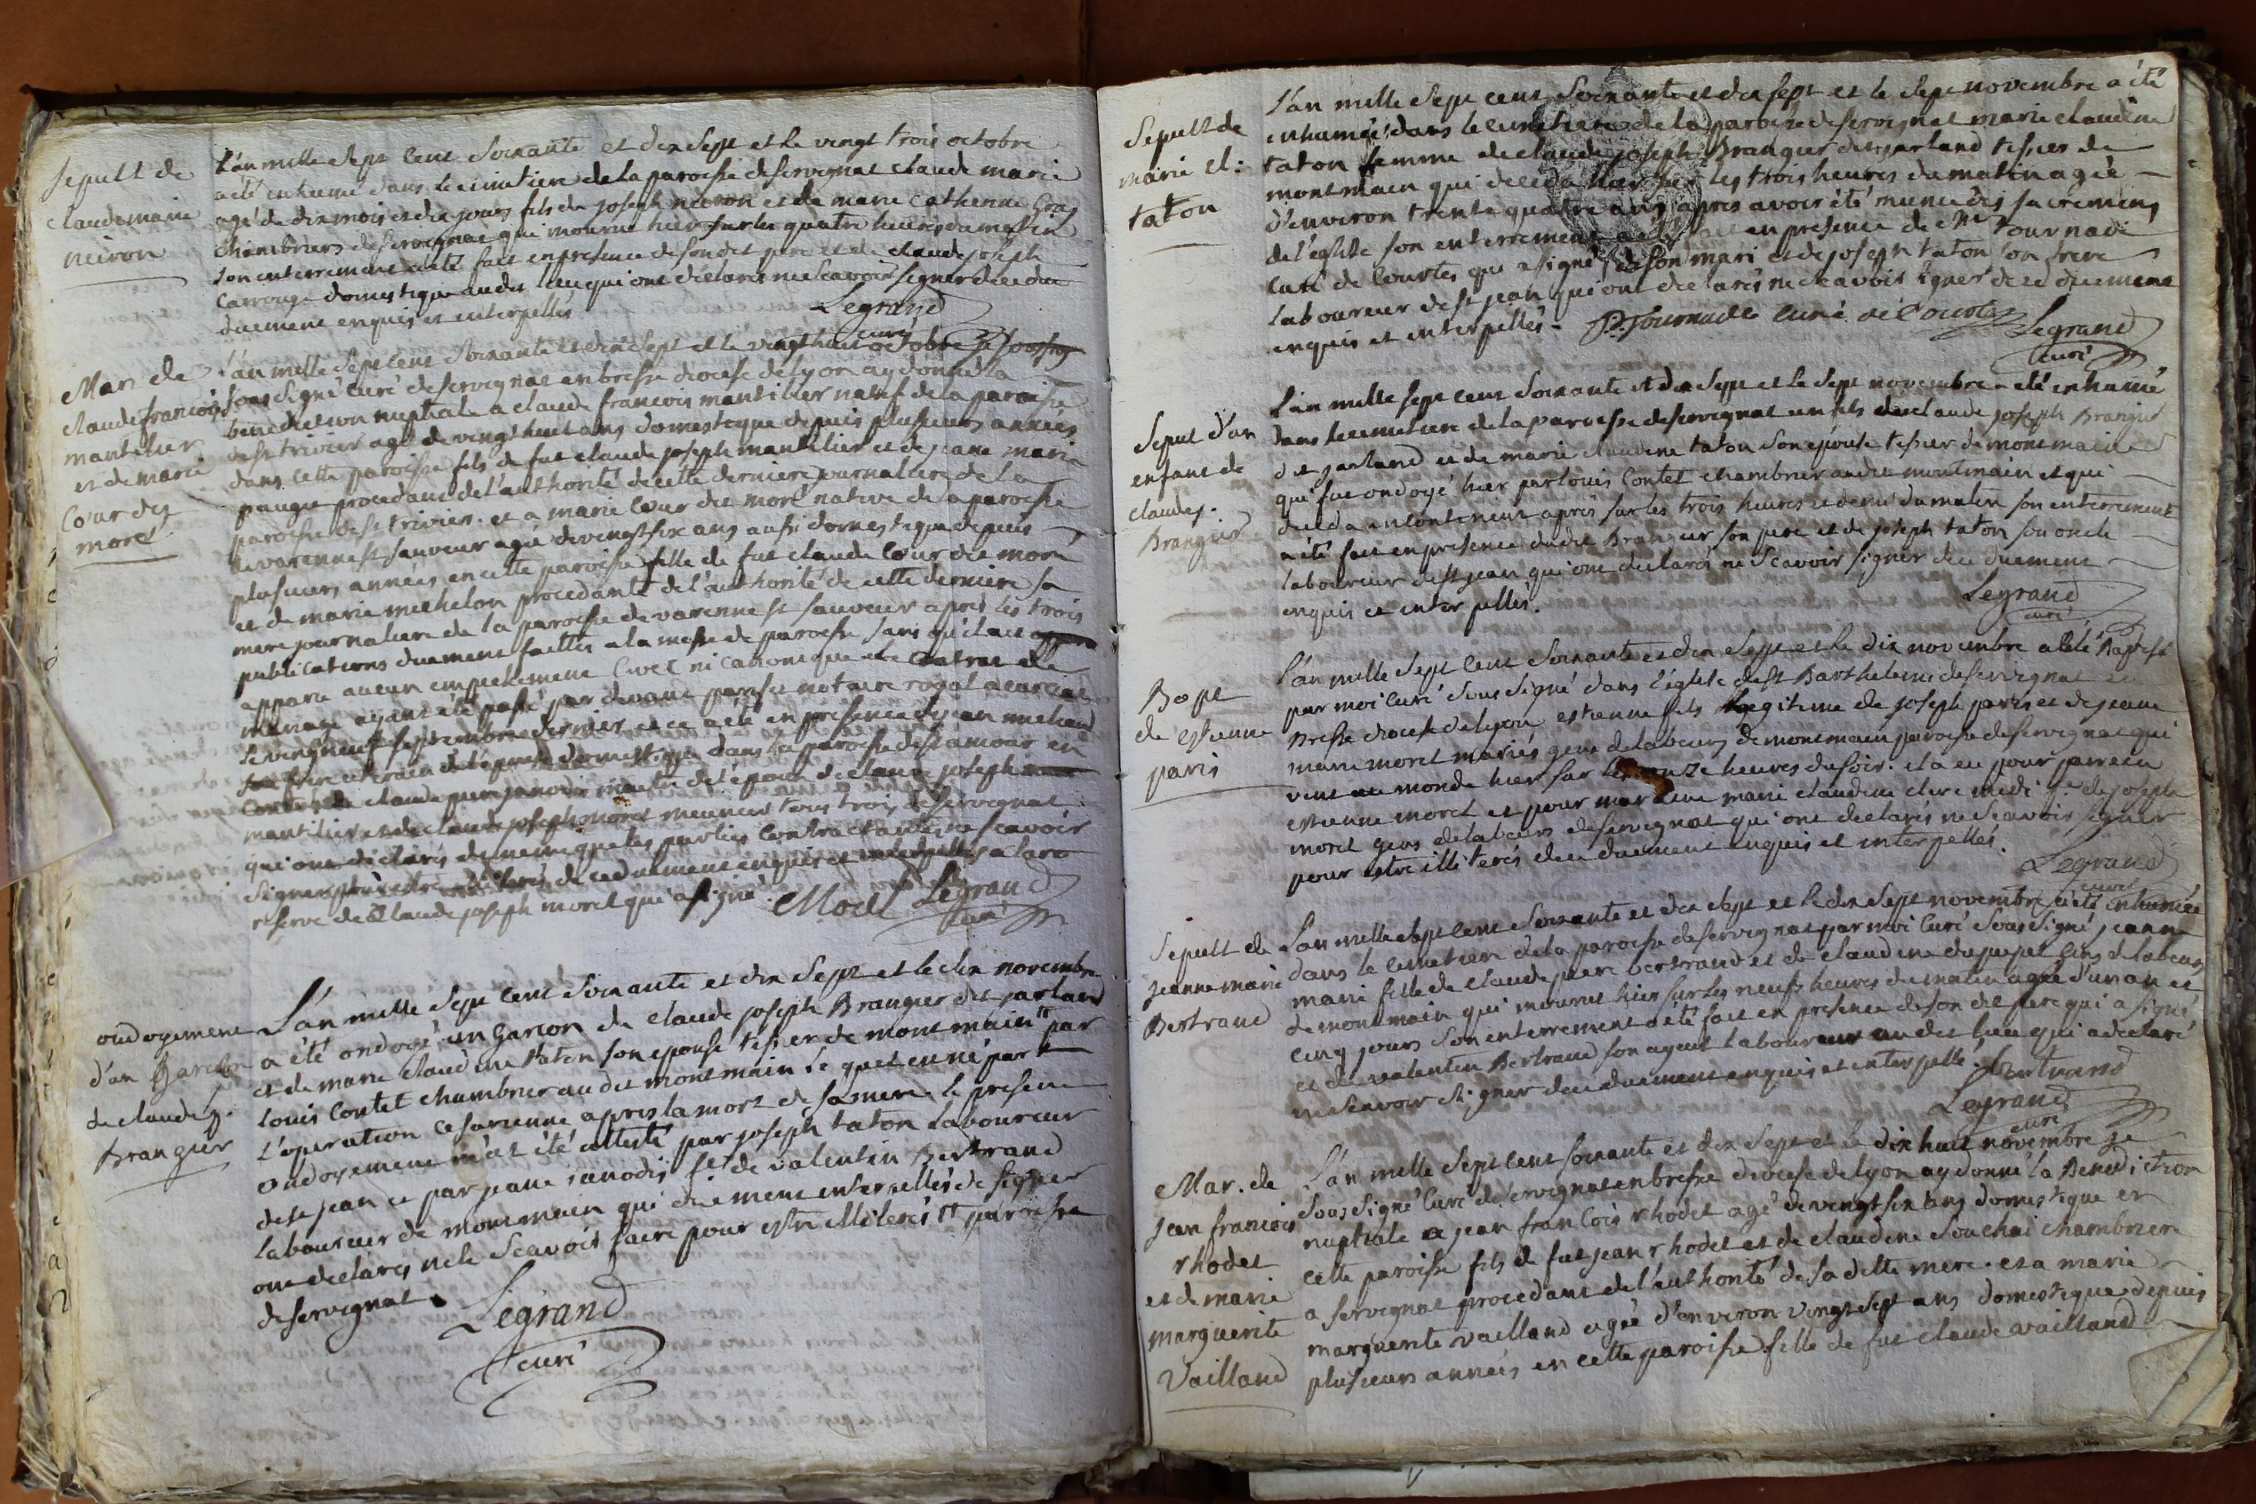 sepult de
claude marie
neiron
L'an mille sept cent soixante et dix sept et le vingt trois octobre
a été enhumé dans le cimetiere de la paroisse de servignat claude marie
agé de dix mois et dix jours fils de joseph neiron et de marie catherine
chambriers de servignat qui mourut hier sur les quatre heures du matin
son enterrement a été fait en presence de son dit pere et de claude joseph
carronge domestique audit lieu qui ont déclarés ne scavoir signer de ce
duement enquis et interpellés
Legrand
curé
Mar. de
claude francois
mantilier
et de marie
cour dit
moré
L'an mille sept cent soixante et dix sept et le vingt huit octobre je soussigné
sous signé curé de servignat en bresse diocese de lyon ay donné la
benediction nuptiale a claude francois mantilier natif de la paroisse
de st trivier agé de vingt huit ans domestique depuis plusieurs années
dans cette paroisse fils de fut claude joseph mantilier et de jeane marie
paugue procedant de l'authorité de cette derniere journaliere de la
paroisse de st trivier. et a marie cour dit moré native de la paroisse
de varenne st sauveur agée de vingt six ans aussi domestique depuis
plusieurs années en cette paroisse fille de fut claude cour dit moré
et de marie michelon procedante de l'authorité de cette derniere sa
mere journaliere de la paroisse de varenne st sauveur apres les trois
publications duement faittes a la messe de paroisse sans qu'il ait
apparu aucun empechement civil ni canonique le contrat de
mariage ayant été passé par devant notaire royal a
le vingt neuf septembre dernier et ce a été en présence de jean michaud
frere uterain de l'epouse domestique dans la paroisse de st amour en
Comté de claude pierre janodi maitre de l'epoux de claude joseph
mantilier et de claude joseph morel meunier tous trois de servignat
qui ont déclarés de meme que les parties contractantes ne scavoir
signer pour estre illiterés de ce duement enquis et interpellés a la
reserve de claude joseph morel qui a signé. Morel Legrand
curé
ondoyement
d'un garcon
de claude j.
Brangier
L'an mille sept cent soixante et dix sept et le six novembre
a été ondoyé un garcon de claude joseph Brangier dit garland
et de marie claudine taton son epouse tissier de montmain par
louis Contet chambrier audit montmain le quel est né par
l'operation cesarienne apres la mort de sa mere. le present
ondoyement m'at été attesté par joseph taton laboureur
de st jean et par jeane janodis fe de valentin Bertrand
laboureur de montmain qui duement interpellés de signer
ont declarés ne le scavoir faire pour estre illiterés paroisse
de servignat.
Legrand
curé
Sepult de
marie cl:
taton
L'an mille sept cent soixante et dix sept et le sept novembre a été
enhumée dans le cimetiere de la paroisse de servignat marie claudine
taton femme de claude joseph Brangier dit garland tissier de
montmain qui deceda hier sur les trois heures du matin agée
d'environ trente quatre ans apres avoir été munie des sacremens
de l'église son enterrement a été fait en presence de mre tournade
curé de Courtes qui a signé, de son mari et de joseph taton son frere
laboureur de st jean qui ont declarés ne scavoir signer de ce duement
enquis et interpellés. P. Tournade curé de Courtes
Legrand
curé
Sepult d'un
enfant de
claude j.
Brangier
L'an mille sept cent soixante et dix sept et le sept novembre a été enhumé
dans le cimetiere de la paroisse de servignat un fils de claude joseph Brangier
dit garland et de marie claudine taton son epouse tissier de montmain
qui fut ondoyé hier par louis Contet chambrier audit montmain et qui
deceda incontinent aprés sur les trois heures et demi du matin son enterrement
a été fait en presence dudit Brangier son pere et de joseph taton son oncle
laboureur de st jean qui ont declarés ne scavoir signer de ce duement
enquis et interpellés.
Legrand
curé
Bapt
de estienne
paris
L'an mille sept cent soixante et dix sept et le dix novembre a été Baptisé
par moi curé sous signé dans l'église de st Barthelemi de servignat en
Bresse diocese de lyon estienne fils legitime de joseph paris et de jeane
marie morel mariés gens de labeurs de montmain paroisse de servignat qui
vint au monde hier sur les onze heures du soir. il a eu pour parrein
estienne morel et pour mareine marie claudine clere de joseph
morel gens de labeurs de servignat qui ont declarés ne scavoir signer
pour estre illiterés de ce duement enquis et interpellés.
Legrand
curé
Sepult de
jeanne marie
Bertrand
L'an mille sept cent soixante et dix sept et le dix sept novembre a été enhumée
dans le cimetiere de la paroisse de servignat par moi curé sous signé jeanne
marie fille de claude pierre Bertrand et de claudine dupuget gens de labeurs
de montmain qui mourut hier sur les neufs heures du matin agée d'un an et
cinq jours son enterrement a été fait en presence de son dit pere qui a signé
et de valentin Bertrand son ayeul laboureur audit lieu qui a declaré
ne scavoir signer de ce duement enquis et interpellé. Bertrand
Legrand
curé
Mar. de
jean francois
rhodet
et de marie
marguerite
Vailland
L'an mille sept cent soixante et dix sept et le dix huit novembre je
sous signé curé de servignat en bresse diocese de lyon ay donné la Benediction
nuptiale a jean francois rhodet agé de vingt six ans domestique en
cette paroisse fils de fut jean rhodet et de claudine souchai chambriere
a servignat procedant de l'authorité de sa ditte mere. et a marie
marguerite vailland agée d'environ vingt sept ans domestique depuis
plusieurs années en cette paroisse fille de fut claude vailland